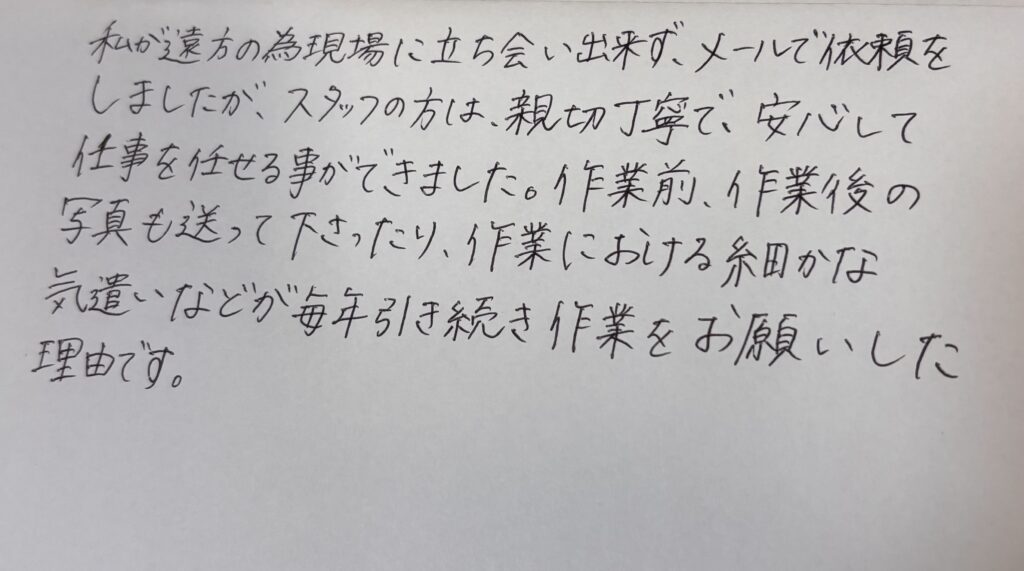 私が遠方の為現場に立ち会い出来ず、メールで依頼を
しましたが、スタッフの方は、親切丁寧で、安心して
仕事を任せる事ができました。作業前、作業後の
写真も送って下さったり、作業における細かな
気遣いなどが毎年引き続き作業をお願いした
理由です。